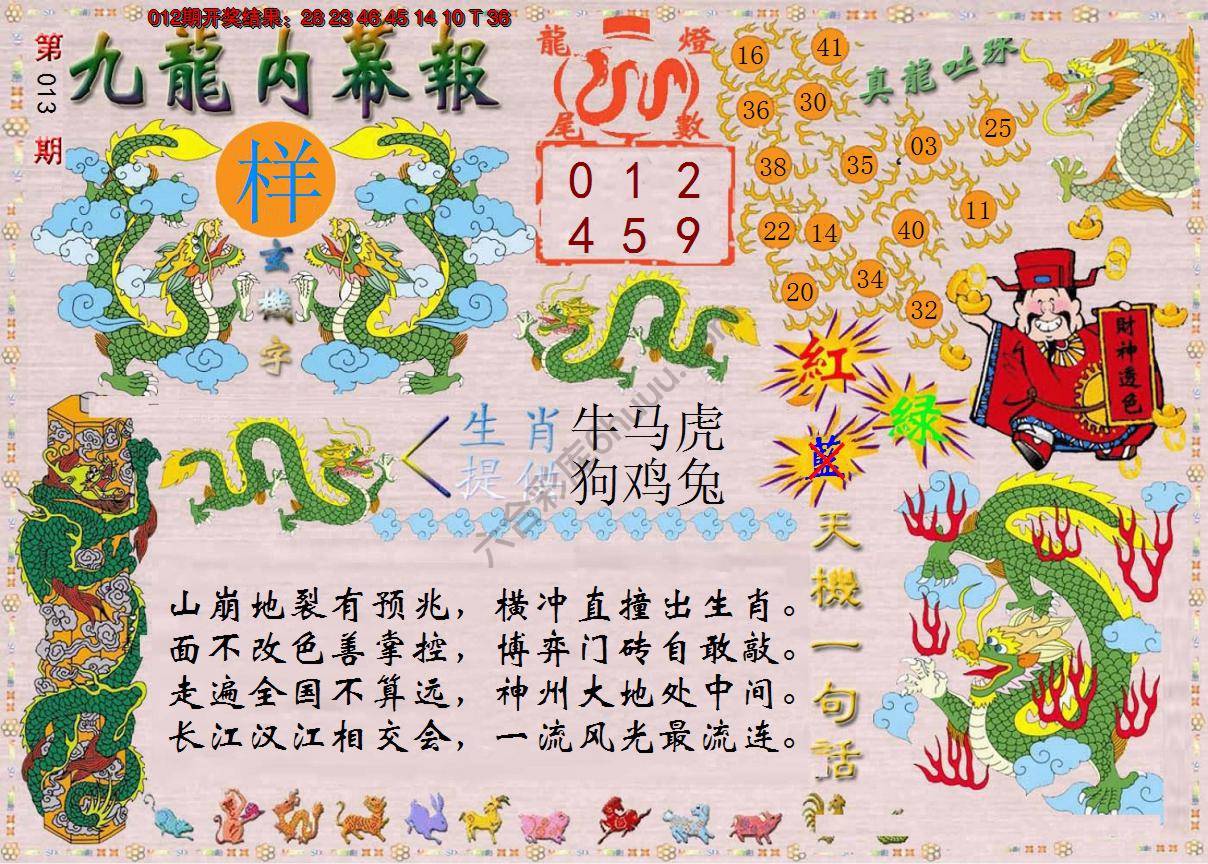 012期开奖结果：28 23 46 45 14 10 T 36
第 013 期
九龍内幕報
样
玄機字
龍燈
尾數
0 1 2
4 5 9
真龍吐珠
16 41
36 30
38 35 03 25
22 14 40 11
20 34 32
財神透色
紅
綠
藍
生肖 牛马虎
提供 狗鸡兔
六合彩库
山崩地裂有预兆，横冲直撞出生肖。
面不改色善掌控，博弈门砖自敢敲。
走遍全国不算远，神州大地处中间。
长江汉江相交会，一流风光最流连。
天機一句話